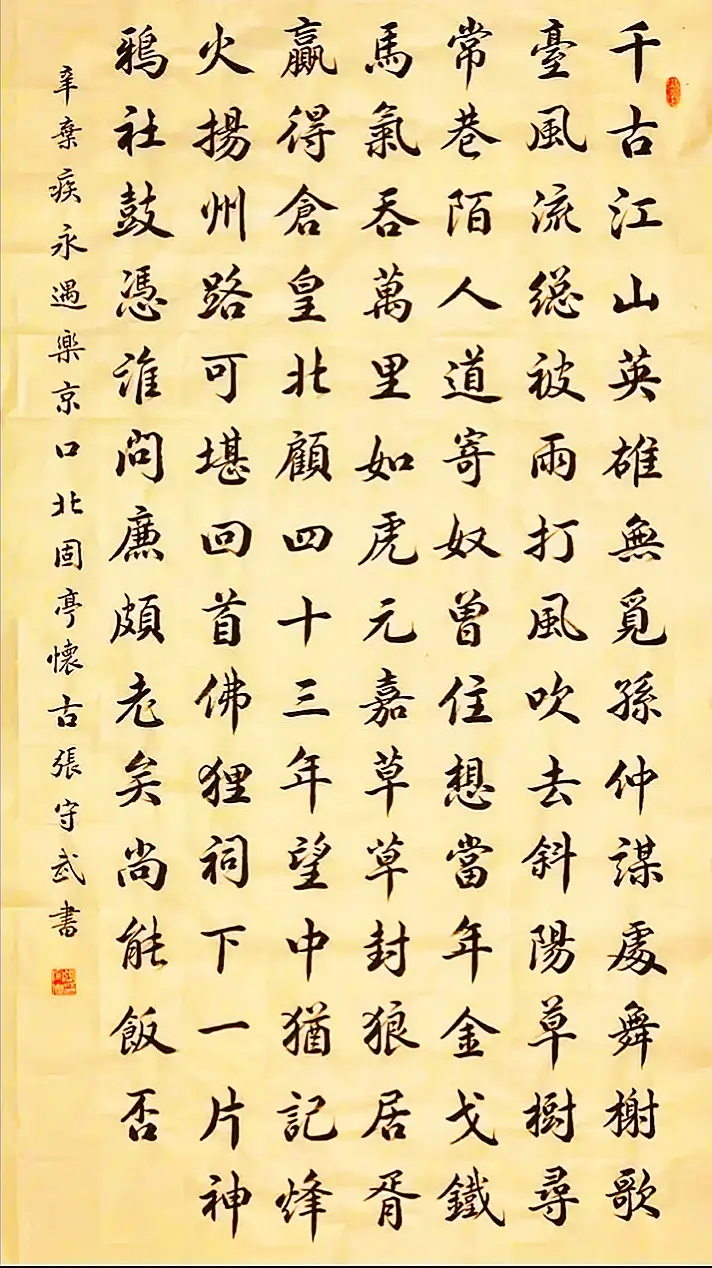 千古江山英雄無覓孫仲謀處舞榭歌
臺風流總被雨打風吹去斜陽草樹尋
常巷陌人道寄奴曾住想當年金戈鐵
馬氣吞萬里如虎元嘉草草封狼居胥
贏得倉皇北顧四十三年望中猶記烽
火揚州路可堪回首佛狸祠下一片神
鴉社鼓憑誰問廉頗老矣尚能飯否
辛棄疾永遇樂京口北固亭懷古張守武書